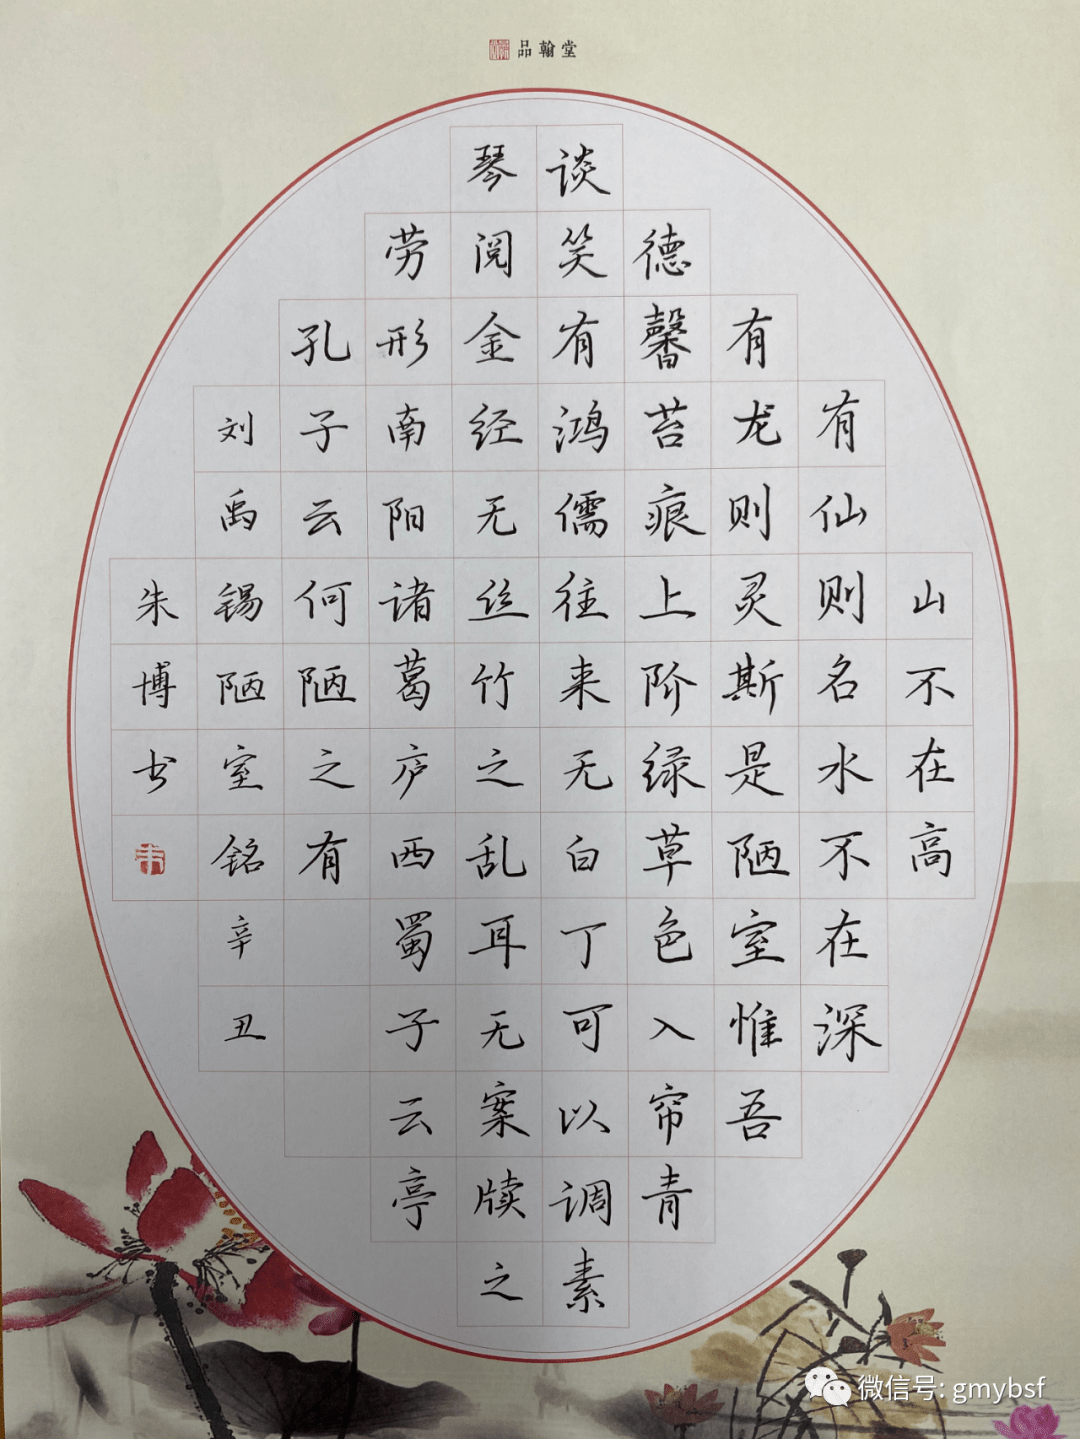 品翰堂
山不在高
有仙则名水不在深
有龙则灵斯是陋室惟吾
德馨苔痕上阶绿草色入帘青
谈笑有鸿儒往来无白丁可以调素
琴阅金经无丝竹之乱耳无案牍之
劳形南阳诸葛庐西蜀子云亭
孔子云何陋之有
刘禹锡陋室铭辛丑
朱博书
微信号: gmybsf